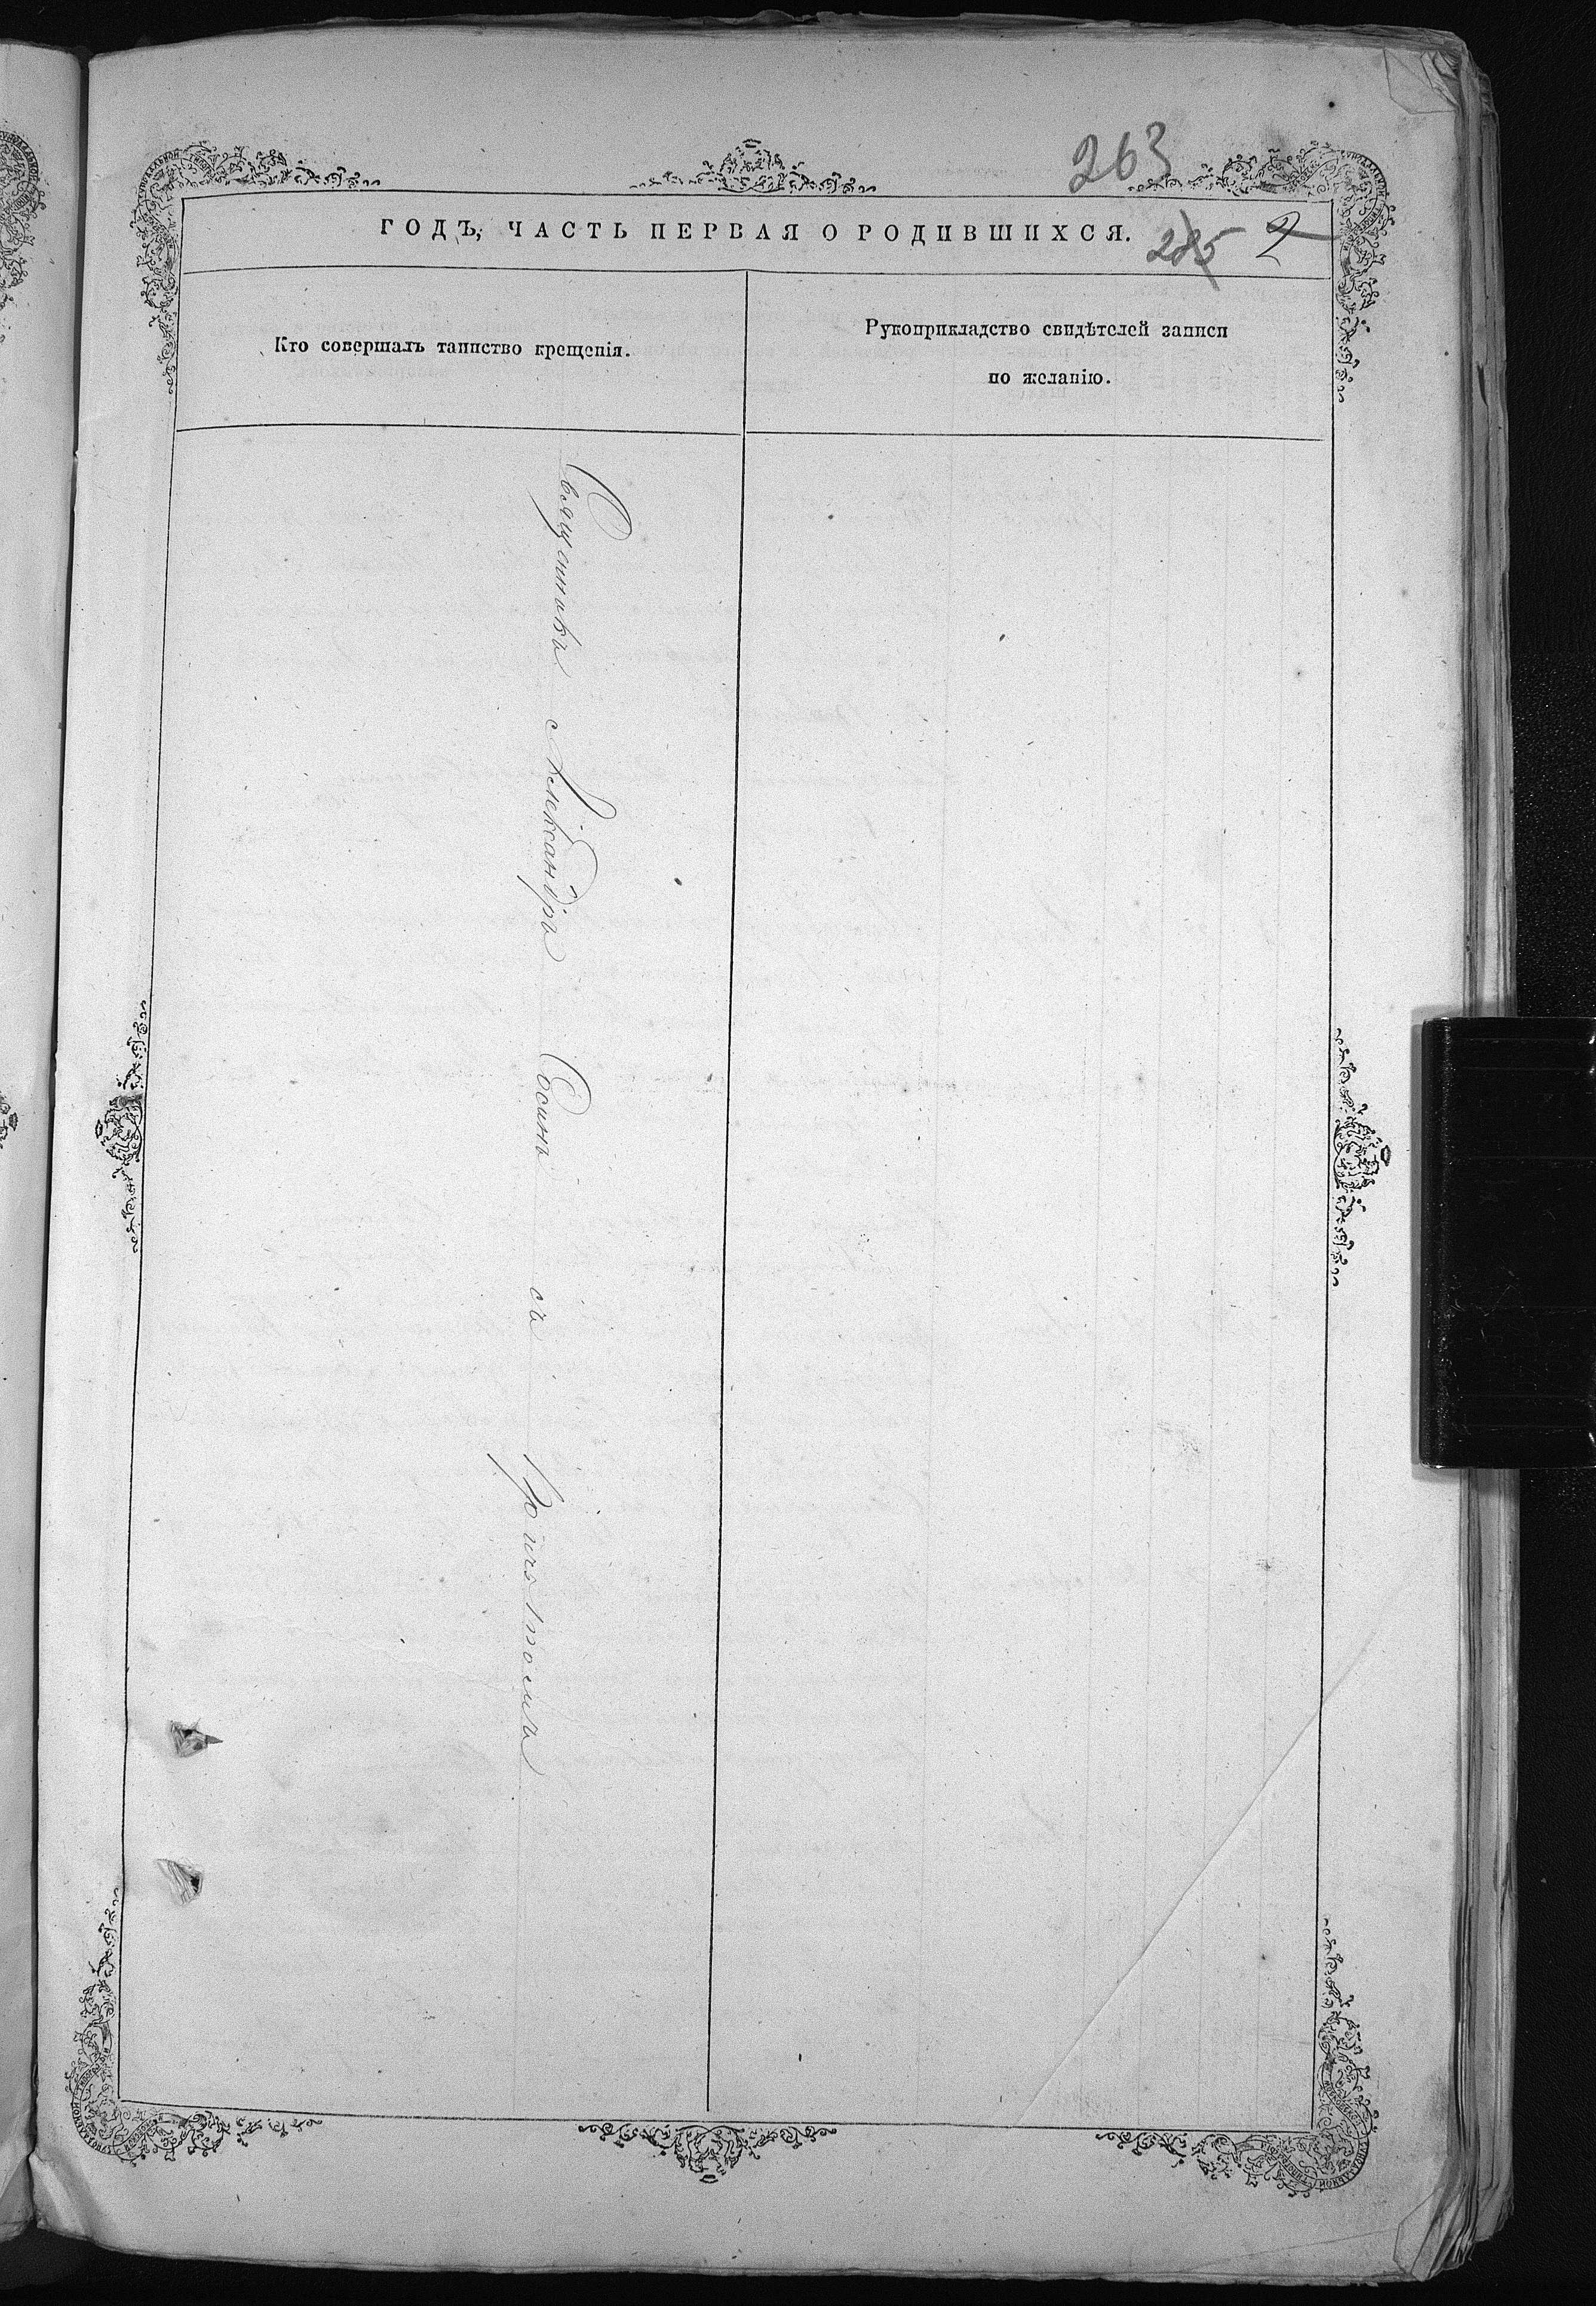 263
ГОДЪ, ЧАСТЬ ПЕРВАЯ О РОДИВШИХСЯ.
285 2
Кто совершалъ таинство крещенія.
Рукоприкладство свидѣтелей записи
по желанію.
Священникъ Александръ Сосинъ съ причтомъ